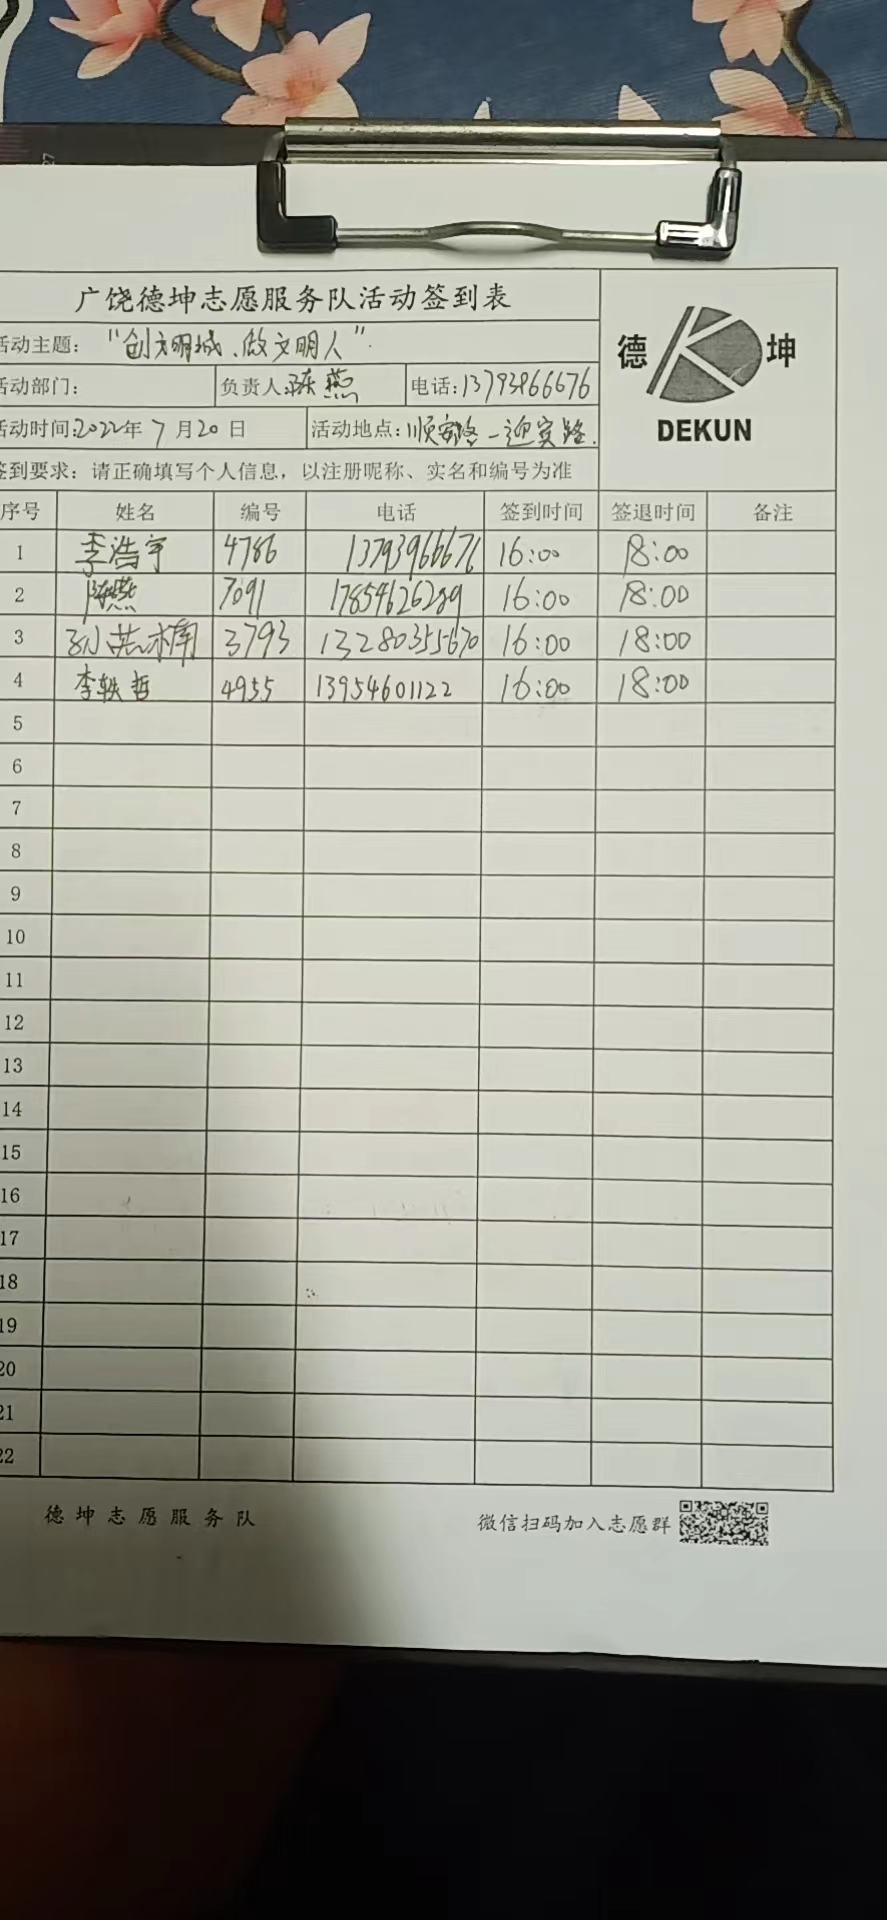 广饶德坤志愿服务队活动签到表
活动主题："创文明城、做文明人"
德 坤
DEKUN
活动部门： 负责人:陈燕 电话:13793966676
活动时间:2022年7月20日 活动地点:顺安路-迎宾路.
签到要求：请正确填写个人信息，以注册昵称、实名和编号为准
序号 姓名 编号 电话 签到时间 签退时间 备注
1 李浩宇 4786 13793966676 16:00 18:00
2 陈燕 7091 17854626289 16:00 18:00
3 3793 13280355670 16:00 18:00
4 李轶哲 4955 13954601122 16:00 18:00
5
6
7
8
9
10
11
12
13
14
15
16
17
18
19
20
21
22
德坤志愿服务队 微信扫码加入志愿群